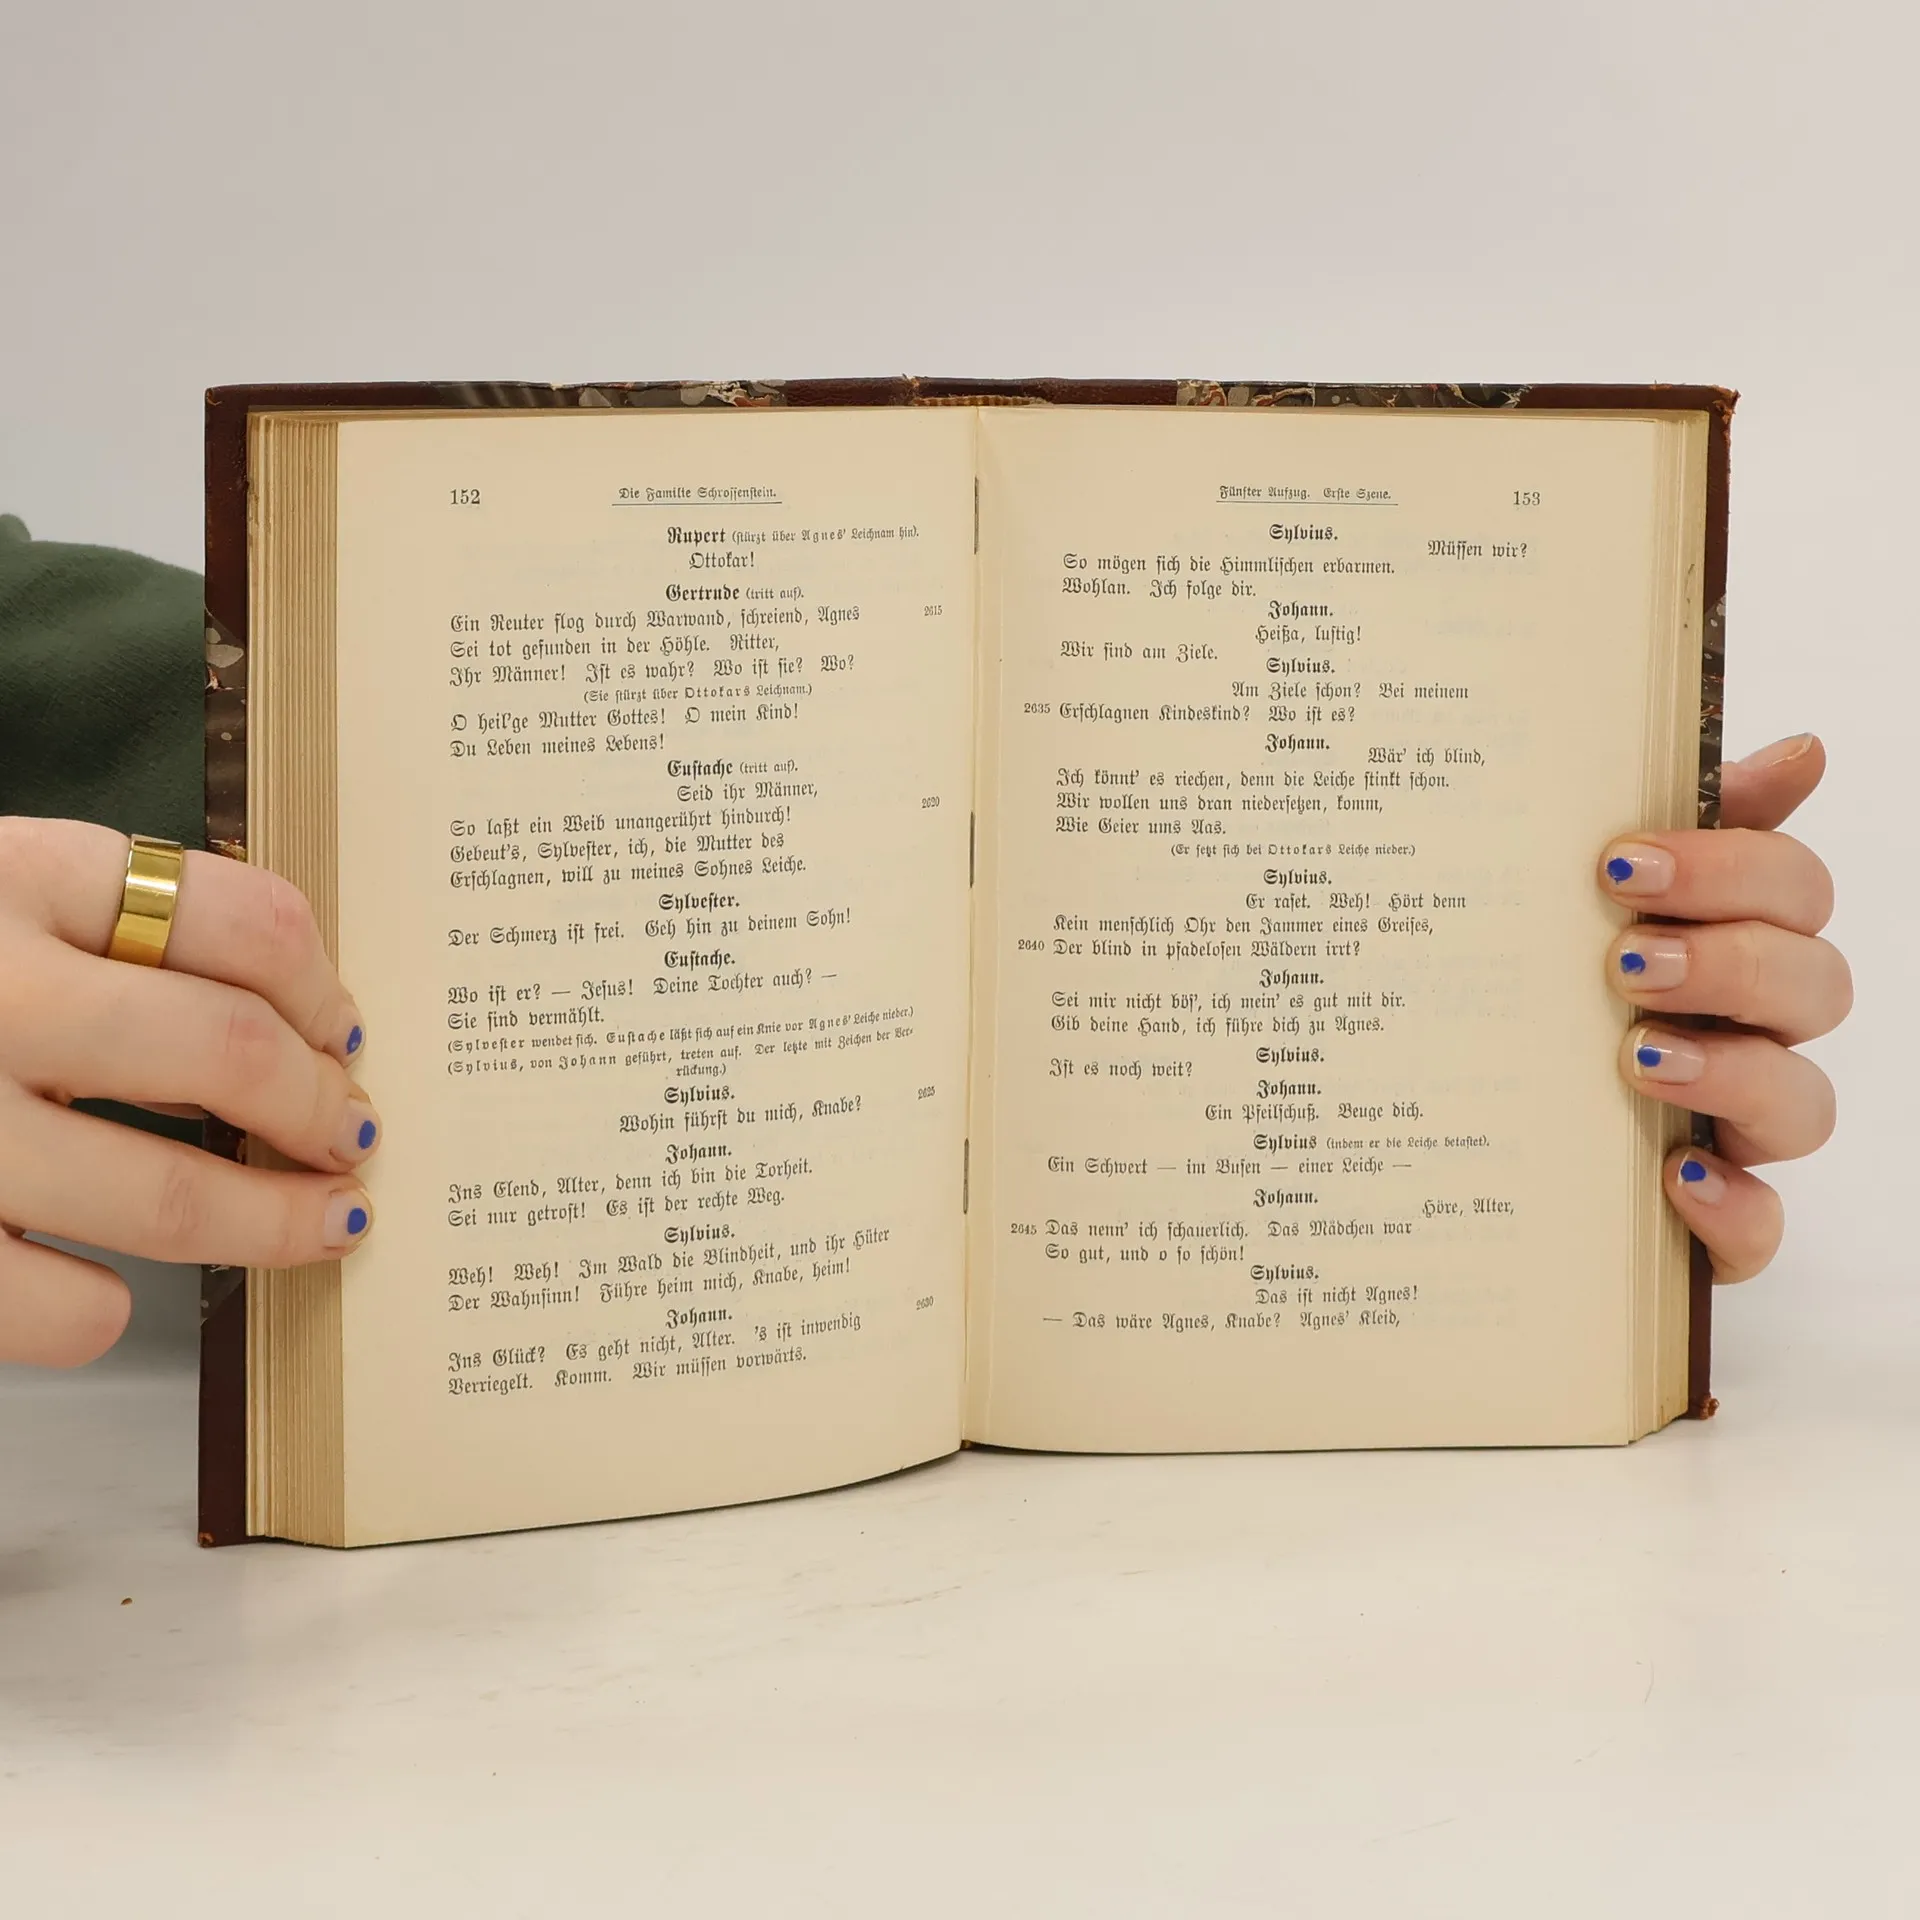 152
Die Familie Schroffenstein.
Rupert (stürzt über Agnes' Leichnam hin).
Ottokar!
Gertrude (tritt auf).
Ein Reuter flog durch Warwand, schreiend, Agnes 2615
Sei tot gefunden in der Höhle. Ritter,
Ihr Männer! Ist es wahr? Wo ist sie? Wo?
(Sie stürzt über Ottokars Leichnam.)
O heil'ge Mutter Gottes! O mein Kind!
Du Leben meines Lebens!
Eustache (tritt auf).
Seid ihr Männer,
So laßt ein Weib unangerührt hindurch! 2620
Gebeut's, Sylvester, ich, die Mutter des
Erschlagnen, will zu meines Sohnes Leiche.
Sylvester.
Der Schmerz ist frei. Geh hin zu deinem Sohn!
Eustache.
Wo ist er? — Jesus! Deine Tochter auch? —
Sie sind vermählt.
(Sylvester wendet sich. Eustache läßt sich auf ein Knie vor Agnes' Leiche nieder.)
(Sylvius, von Johann geführt, treten auf. Der letzte mit Zeichen der Ver-
rückung.)
Sylvius.
Wohin führst du mich, Knabe? 2625
Johann.
Ins Elend, Alter, denn ich bin die Torheit.
Sei nur getrost! Es ist der rechte Weg.
Sylvius.
Weh! Weh! Im Wald die Blindheit, und ihr Hüter
Der Wahnsinn! Führe heim mich, Knabe, heim!
Johann.
Ins Glück? Es geht nicht, Alter. 's ist inwendig 2630
Verriegelt. Komm. Wir müssen vorwärts.
Fünfter Aufzug. Erste Szene.
153
Sylvius.
Müssen wir?
So mögen sich die Himmlischen erbarmen.
Wohlan. Ich folge dir.
Johann.
Heißa, lustig!
Wir sind am Ziele.
Sylvius.
Am Ziele schon? Bei meinem
2635 Erschlagnen Kindeskind? Wo ist es?
Johann.
Wär' ich blind,
Ich könnt' es riechen, denn die Leiche stinkt schon.
Wir wollen uns dran niedersetzen, komm,
Wie Geier ums Aas.
(Er setzt sich bei Ottokars Leiche nieder.)
Sylvius.
Er raset. Weh! Hört denn
Kein menschlich Ohr den Jammer eines Greises,
2640 Der blind in pfadelosen Wäldern irrt?
Johann.
Sei mir nicht bös', ich mein' es gut mit dir.
Gib deine Hand, ich führe dich zu Agnes.
Sylvius.
Ist es noch weit?
Johann.
Ein Pfeilschuß. Beuge dich.
Sylvius (indem er die Leiche betastet).
Ein Schwert — im Busen — einer Leiche —
Johann.
Höre, Alter,
2645 Das nenn' ich schauerlich. Das Mädchen war
So gut, und o so schön!
Sylvius.
Das ist nicht Agnes!
— Das wäre Agnes, Knabe? Agnes' Kleid,